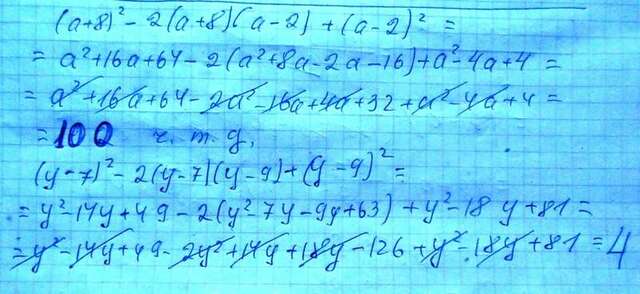 (a+8)² - 2(a+8)(a-2) + (a-2)² =
= a²+16a+64 - 2(a²+8a-2a-16)+a²-4a+4 =
= a²+16a+64 - 2a²-16a+4a+32+a²-4a+4 =
= 100 ч. т. д.
(y-7)² - 2(y-7)(y-9)+(y-9)² =
= y²-14y+49 - 2(y²-7y-9y+63) + y²-18y+81 =
= y²-14y+49-2y²+14y+18y-126+y²-18y+81 = 4